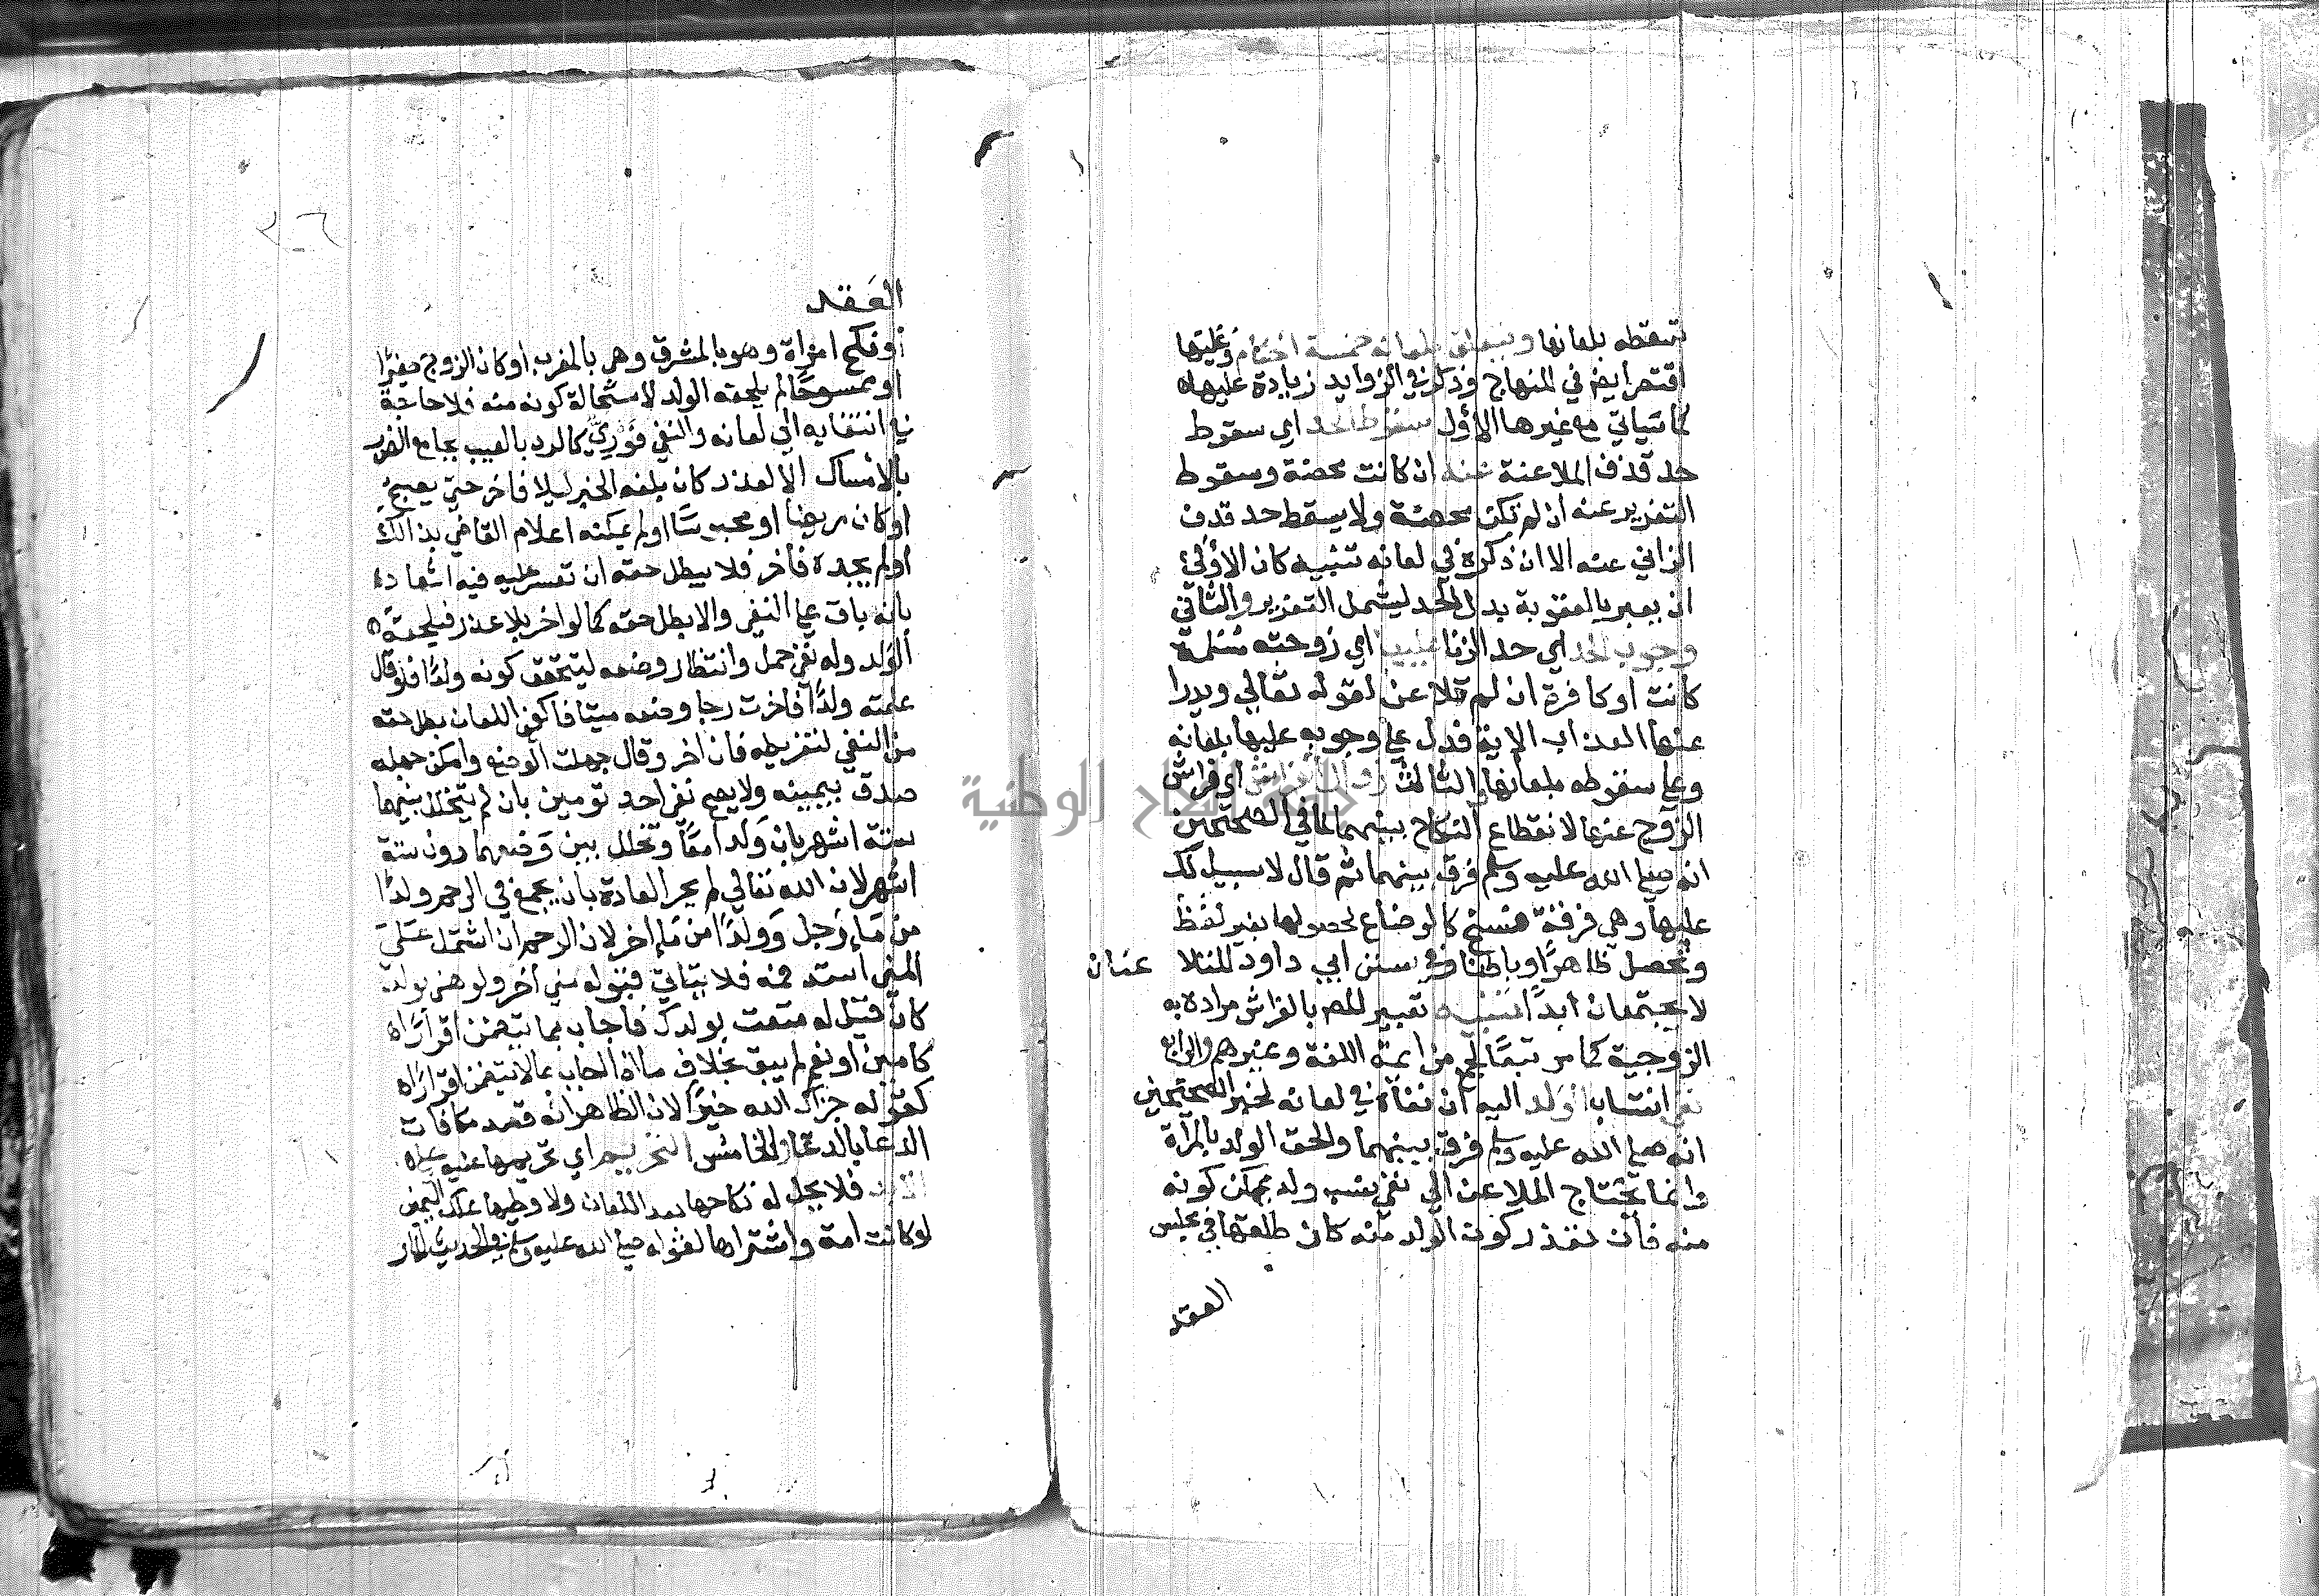 تسقطه بلعانها ويتعلق بلعانه خمسة احكام وعليها
اقتصر ايضا في المنهاج وذكر في الزوايد زيادة عليها
كما سياتي مع غيرها الاول سقوط الحد اي سقوط
حد قذف الملاعنة عنه ان كانت محصنة وسقوط
التعزير عنه ان لم تكن محصنة ولا يسقط حد قذف
الزاني عنه الا ان ذكره في لعانه تنبيه كان الاولى
ان يعبر بالعقوبة بدل الحد ليشمل التعزير والثاني
وجوب الحد اي حد الزنا عليها اي زوجته مسلمة
كانت او كافرة ان لم تلاعن لقوله تعالي ويدرا
عنها العذاب الاية فدل علي وجوبه عليها بلعانه
وعلي سقوطه بلعانها والثالث زوال الفراش اي فراش
الزوج عنها لانقطاع النكاح بينهما لما في الصحيحين
انه صلي الله عليه وسلم فرق بينهما ثم قال لا سبيل لك
عليها وهي فرقة فسخ كالرضاع لحصولها بغير لفظ
وتحصل ظاهرًا وباطنا وفي سنن ابي داود المتلا عنان
لا يجتمعان ابدًا تنبيه تعبير المص بالفراش مراده به
الزوجية كما مر تبعًا لجمع من ايمة اللغة وغيرهم والرابع
نفي انتساب الولد اليه ان نفاه في لعانه لخبر الصحيحين
انه صلي الله عليه وسلم فرق بينهما والحق الولد بالمرأة
وانما يحتاج الملاعن الي نفي نسب ولد يمكن كونه
منه فان تعذر كون الولد منه كان طلقها في مجلس
العقد
العقد
أو نكح امراة وهو بالمشرق وهي بالمغرب او كان الزوج صغيرًا
او ممسوحًا لم يلحقه الولد لاستحالة كونه منه فلا حاجة
في انتفايه الي لعانه والنفي فوري كالرد بالعيب بجامع الضرر
بالامساك الا لعذر كان بلغه الخبر ليلا فاخر حتي يصبح
او كان مريضا او محبوسًا او لم يمكنه اعلام القاضي بذالك
او لم يجده فاخر فلا يبطل حقه ان تعسر عليه فيه اشهاد
بانه باق علي النفي والا بطل حقه كما لو اخر بلا عذر فيلحقه
الولد وله نفي حمل وانتظار وضعه ليتحقق كونه ولدًا فلو قال
علمته ولدًا فاخرت رجا وضعه ميتا فاكفي اللعان بطل حقه
من النفي لتفريطه فان اخر وقال جهلت الوضع وامكن جهله
صدق بيمينه ولا يصح نفي احد توءمين بان لم يتخلل بينهما
ستة اشهر بان ولدا معًا وتخلل بين وضعهما دون ستة
اشهر لان الله تعالي لم يجر العادة بان يجمع في الرحم ولدًا
من ماء رجل وولدًا من ماء اخر لان الرحم ان اشتمل علي
المني استد فمه فلا يتاتي قبوله مني اخر ولو هني بولد
كان قيل له متعت بولدك فاجاب بما يتضمن اقرارًا
كامين او نعم لم ينتف بخلاف ما اذا اجاب بما لا يتضمن اقرارًا
كقوله جزاك الله خيرًا لان الظاهر انه قصد مكافات
الدعا بالدعا والخامس التحريم اي تحريمها عليه علي
الابد فلا يحل له نكاحها بعد اللعان ولا وطيها بملك اليمين
لو كانت امة واشتراها لقوله صلي الله عليه وسلم في الحديث المار